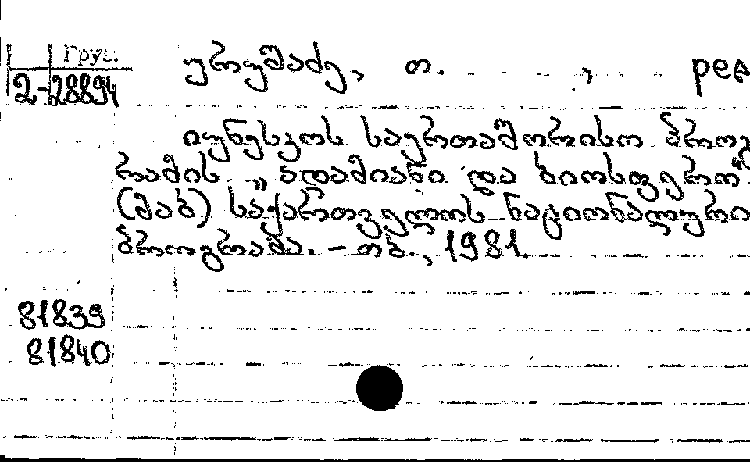 Груз.
2-28894
ურუშაძე, თ. , ред
იუნესკოს საერთაშორისო პროგ
რამის „ადამიანი და ბიოსფერო"
(მაბ) საქართველოს ნაციონალური
პროგრამა. – თბ., 1981.
81839
81840